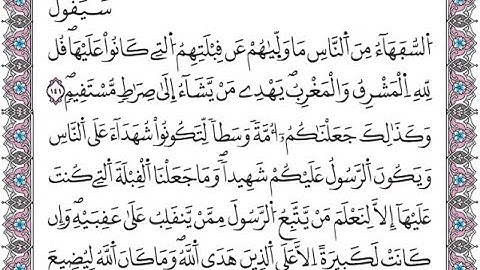 سَيَقُولُ
اُ۬لسُّفَهَآءُ مِنَ اَ۬لنَّاسِ مَا وَلّ۪يٰهُمْ عَن قِبْلَتِهِمُ اُ۬لتِے كَانُواْ عَلَيْهَاۖ قُل
لِّلهِ اِ۬لْمَشْرِقُ وَالْمَغْرِبُۖ يَهْدِے مَنْ يَّشَآءُ اِلَىٰ صِرَٰطٖ مُّسْتَقِيمٖۖ ١٤١
وَكَذَٰلِكَ جَعَلْنَٰكُمُۥٓ أُمَّةٗ وَسَطاٗ لِّتَكُونُواْ شُهَدَآءَ عَلَى اَ۬لنَّاسِ
وَيَكُونَ اَ۬لرَّسُولُ عَلَيْكُمْ شَهِيداٗۖ وَمَا جَعَلْنَا اَ۬لْقِبْلَةَ اَ۬لتِے كُنتَ
عَلَيْهَآ إِلَّا لِنَعْلَمَ مَنْ يَّتَّبِعُ اُ۬لرَّسُولَ مِمَّنْ يَّنقَلِبُ عَلَىٰ عَقِبَيْهِۖ وَإِن
كَانَتْ لَكَبِيرَةً اِلَّا عَلَى اَ۬لذِينَ هَدَى اَ۬للَّهُۖ وَمَا كَانَ اَ۬للَّهُ لِيُضِيعَ